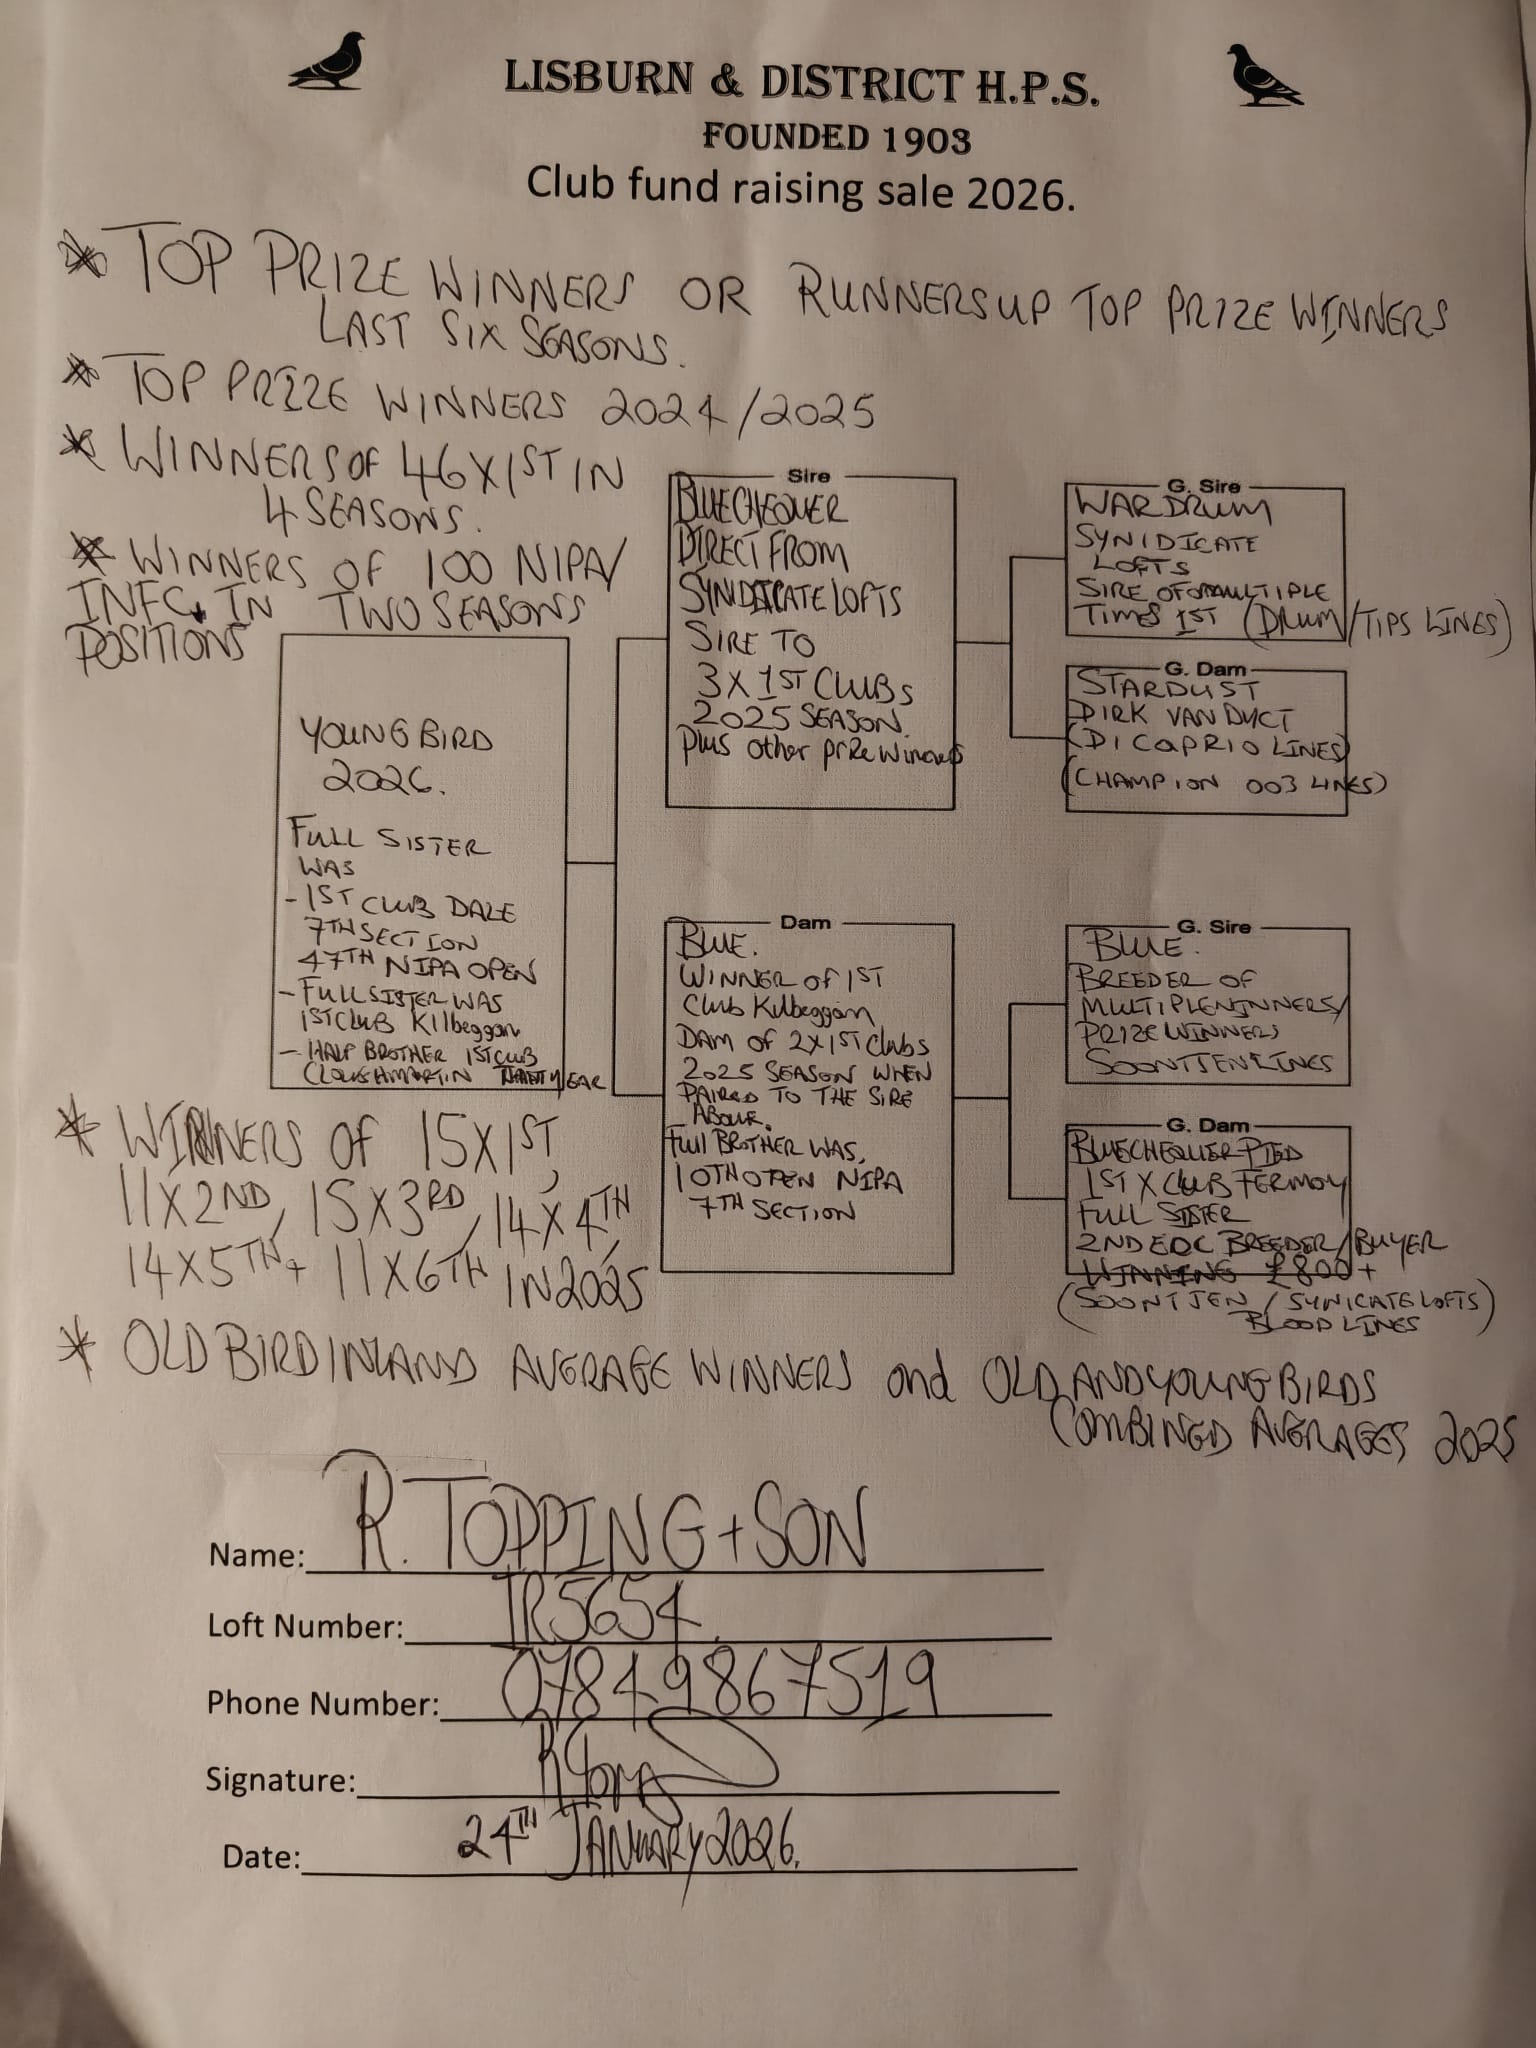 LISBURN & DISTRICT H.P.S.
FOUNDED 1903
Club fund raising sale 2026.
* TOP PRIZE WINNERS OR RUNNERS UP TOP PRIZE WINNERS
LAST SIX SEASONS.
* TOP PRIZE WINNERS 2024/2025
* WINNERS OF 46 X 1ST IN
4 SEASONS.
* WINNERS OF 100 NIPA/
INFC IN TWO SEASONS
POSITIONS
YOUNG BIRD
2026.
FULL SISTER
WAS
- 1ST CLUB DALE
7TH SECTION
47TH NIPA OPEN
- FULL SISTER WAS
1ST CLUB Kilbeggan
- HALF BROTHER 1ST CLUB
CLOUGHMARTIN THAT YEAR
Sire
BLUE CHEQUER
DIRECT FROM
SYNDICATE LOFTS
SIRE TO
3 X 1ST CLUBS
2025 SEASON.
Plus other prize winners
G. Sire
WAR DRUM
SYNIDICATE
LOFTS
SIRE OF MULTIPLE
TIMES 1ST (DRUM/TIPS LINES)
G. Dam
STARDUST
DIRK VAN DYCT
(DI CAPRIO LINES)
(CHAMPION 003 LINES)
Dam
BLUE.
WINNER OF 1ST
Club Kilbeggan
DAM OF 2X1ST Clubs
2025 SEASON WHEN
PAIRED TO THE SIRE
ABOVE.
Full BROTHER WAS,
10TH OPEN NIPA
7TH SECTION
G. Sire
BLUE.
BREEDER OF
MULTIPLE WINNERS/
PRIZE WINNERS
SOONTJEN LINES
G. Dam
BLUE CHEQUER PIED
1ST X CLUB FERMOY
FULL SISTER
2ND EDC BREEDER/BUYER
WINNING £800+
(SOONTJEN / SYNICATE LOFTS)
BLOOD LINES
* WINNERS OF 15X1ST,
11X2ND, 15X3RD, 14X4TH,
14X5TH + 11X6TH IN 2025
* OLD BIRD INLAND AVERAGE WINNERS and OLD AND YOUNG BIRDS
COMBINED AVERAGES 2025
Name: R. TOPPING + SON
Loft Number: TR5654
Phone Number: 07849867519
Signature:
Date: 24TH JANUARY 2026.